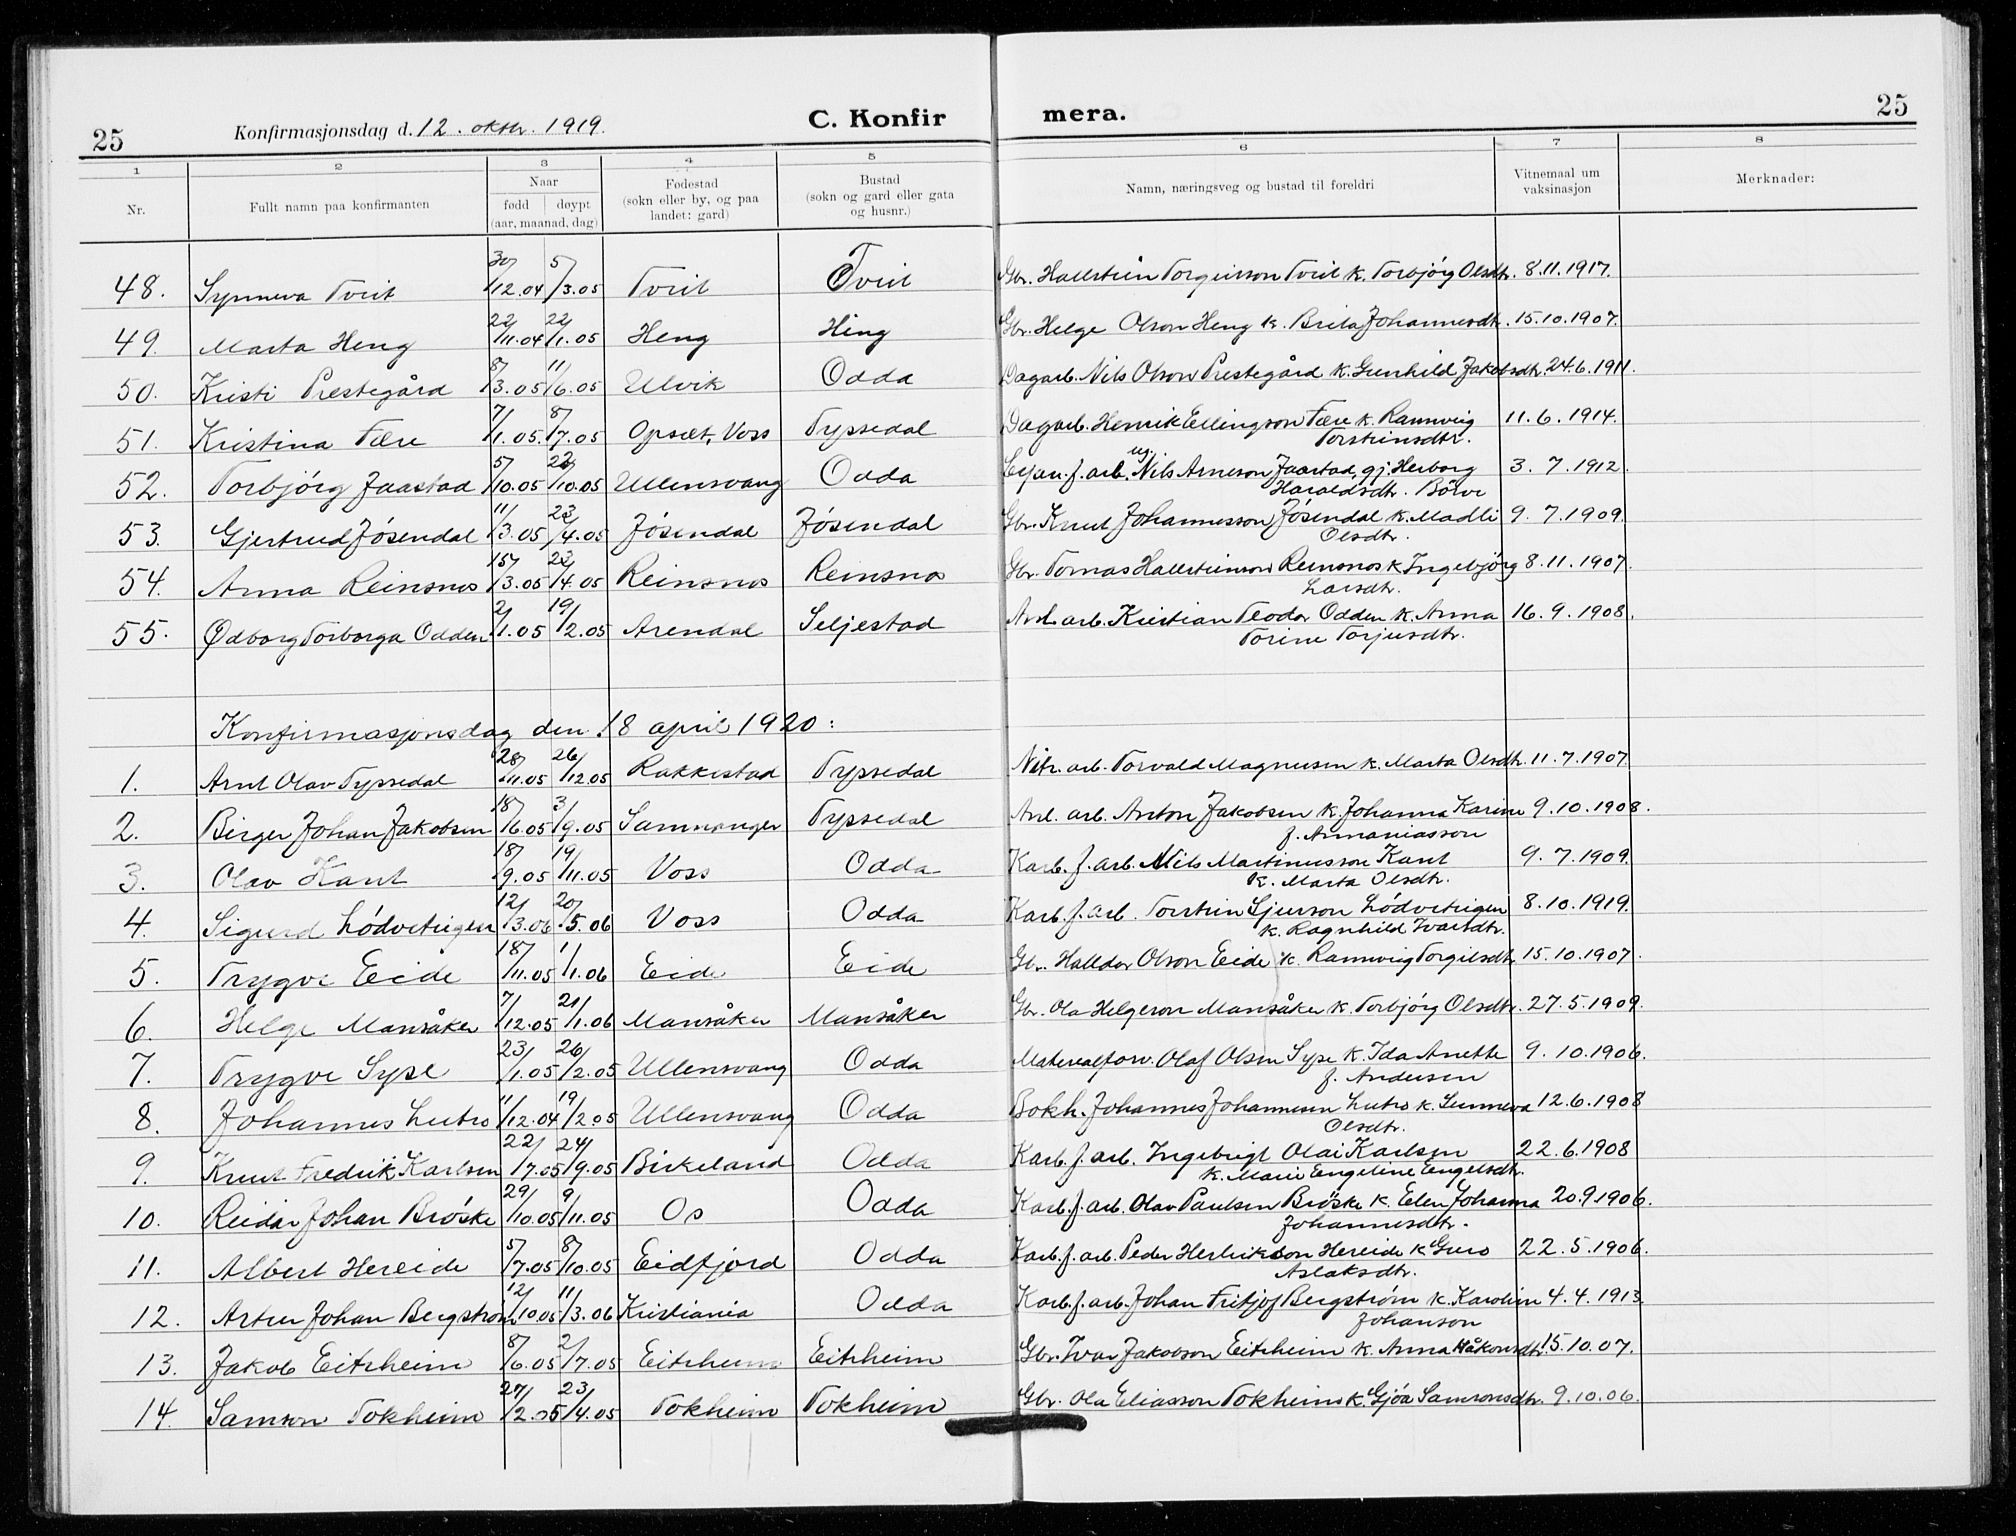 25 Konfirmasjonsdag d. 12. oktbr. 1919. C. Konfir mera. 25
1 2 3 4 5 6 7 8
Nr. Fullt namn paa konfirmanten Naar født | døypt (aar, maanad, dag) Fødestad (sokn eller by, og paa landet: gard) Bustad (sokn og gard eller gata og husnr.) Namn, næringsveg og bustad til foreldri Vitnemaal um vaksinasjon Merknader:
48. Synneva Tveit 30/12.04 5/3.05 Tveit Tveit Gbr. Hallstein Torgeirsson Tveit k. Torbjörg Olsdtr. 8.11.1917.
49. Marta Heng 22/11.04 22/1.05 Heng Heng Gbr. Helge Olson Heng k. Brita Johannesdtr. 15.10.1907.
50. Kristi Prestegård 8/3.05 11/6.05 Ulvik Odda Dagarb. Nils Olson Prestegård k. Gunhild Jakobsdtr. 24.6.1911.
51. Kristina Fære 7/1.05. 8/7.05 Opsæt, Voss Tyssedal Dagarb. Henrik Ellingson Fære k. Rannveig 11.6.1914.
Torsteinsdtr.
52. Torbjörg Jaastad 5/10.05 22/10.05 Ullensvang Odda f. arb. ug. Nils Arneson Jaastad, gj. Herborg 3.7.1912.
Haraldsdtr. Börve
53. Gjertrud Jösendal 11/3.05 23/4.05 Jösendal Jösendal Gbr. Knut Johannesson Jösendal k. Madli 9.7.1909.
Olsdtr.
54. Anna Reinsnos 15/3.05 23/4.05 Reinsnos Reinsnos Gbr. Tomas Hallsteinson Reinsnos k Ingebjörg 8.11.1907.
Larsdtr.
55. Ødborg Torborga Odden 2/1.05 19/2.05 Arendal Seljestad Anl. arb. Kristian Teodor Odden k. Anna 16.9.1908.
Torine Torjusdtr.
Konfirmasjonsdag den 18 april 1920:
1. Arnt Olav Tyssedal 28/11.05 26/12.05 Rakkestad Tyssedal Nitr. arb. Torvald Magnusen k. Marta Olsdtr. 11.7.1907.
2. Birger Johan Jakobsen 18/6.05 3/9.05 Samnanger Tyssedal Anl. arb. Anton Jakobsen k. Johanna Karine 9.10.1908.
f. Annaniasson
3. Olav Kant 18/9.05 19/11.05 Voss Odda Karb. f. arb. Nils Martinusson Kant 9.7.1909.
k. Marta Olsdtr.
4. Sigurd Lödveteigen 12/3.06 20/5.06 Voss Odda Karb. f. arb. Torstein Sjurson Lödveteigen 8.10.1919.
k. Ragnhild Ivarsdtr.
5. Trygve Eide 18/11.05 1/1.06 Eide Eide Gbr. Halldor Olson Eide k. Rannveig Torgilsdtr. 15.10.1907.
6. Helge Mannsåker 7/12.05 21/1.06 Mannsåker Mannsåker Gbr. Ola Helgeson Mannsåker k Torbjörg Olsdtr. 27.5.1909.
7. Trygve Syse 23/1.05 26/2.05 Ullensvang Odda Materealforv. Olaf Olsen Syse k. Ida Anette 9.10.1906.
f. Andersen
8. Johannes Lutro 11/12.04 19/2.05 Ullensvang Odda Bokh. Johannes Johannesen Lutro k. Sunneva 12.6.1908
Olsdtr.
9. Knut Fredrik Karlsen 22/7.05 24/9.05 Birkeland Odda Karb. f. arb. Ingebrigt Olai Karlsen 22.6.1908
k. Marie Engeline Engelsdtr.
10. Reidar Johan Bröske 29/10.05 9/11.05 Os Odda Karb. f. arb. Olav Paulsen Bröske k. Elen Johanna 20.9.1906.
Johannesdtr.
11. Albert Hereide 5/7.05 8/10.05 Eidfjord Odda Karb. f. arb. Peder Henrikson Hereide k Guro 22.5.1906.
Aslaksdtr.
12. Artur Johan Bergström 12/10.05 11/3.06 Kristiania Odda Karb. f. arb. Johan Fritjof Bergström k. Karoline 4.4.1913.
Johanson
13. Jakob Eitrheim 8/6.05 2/7.05 Eitrheim Eitrheim Gbr. Ivar Jakobson Eitrheim k. Anna Håkonsdtr. 15.10.07.
14. Samson Tokheim 27/2.05 23/4.05 Tokheim Tokheim Gbr. Ola Eliasson Tokheim k. Gjöa Samsonsdtr. 9.10.06.